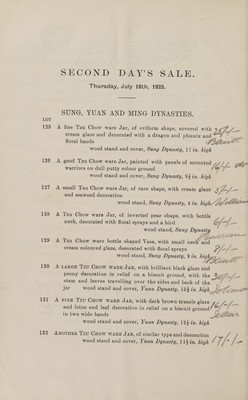 SECOND DAY'S SALE.
Thursday, July 16th, 1925.
SUNG, YUAN AND MING DYNASTIES.
LOT
125 A fine Tzu Chow ware Jar, of oviform shape, covered with
cream glaze and decorated with a dragon and phœnix and
floral bands
wood stand and cover, Sung Dynasty, 11 in. high
126 A good Tzu Chow ware Jar, painted with panels of mounted
warriors on dull putty colour ground
wood stand and cover, Sung Dynasty, 9½ in. high
127 A small Tzu Chow ware Jar, of rare shape, with cream glaze
and seaweed decoration
wood stand, Sung Dynasty, 4 in. high
128 A Tzu Chow ware Jar, of inverted pear shape, with bottle
neck, decorated with floral sprays and a bird
wood stand, Sung Dynasty
129 A Tzu Chow ware bottle shaped Vase, with small neck and
cream coloured glaze, decorated with floral sprays
wood stand, Sung Dynasty, 9 in. high
130 A large Tzu Chow ware Jar, with brilliant black glaze and
peony decoration in relief on a biscuit ground, with the
stem and leaves travelling over the sides and back of the
jar wood stand and cover, Yuan Dynasty, 15½ in. high
131 A fine Tzu Chow ware Jar, with dark brown treacle glaze
and lotus and leaf decoration in relief on a biscuit ground
in two wide bands
wood stand and cover, Yuan Dynasty, 11½ in. high
132 Another Tzu Chow ware Jar, of similar type and decoration
wood stand and cover, Yuan Dynasty, 11½ in. high 17/-/-